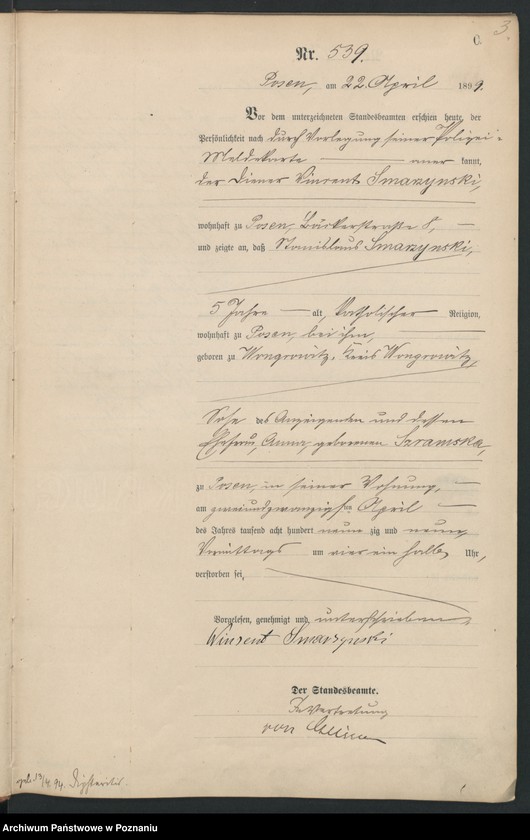 3.
C.
Nr. 539.
Posen, am 22. April 1899.
Vor dem unterzeichneten Standesbeamten erschien heute, der
Persönlichkeit nach durch Vorlegung seiner Polizei-
Meldekarte — aner kannt,
der Diener Vincent Smarzynski,
wohnhaft zu Posen, Bäckerstraße 8, —
und zeigte an, daß Stanislaus Smarzynski,
5 Jahre — alt, katholischer Religion,
wohnhaft zu Posen, bei ihm,
geboren zu Wongrowitz, Kreis Wongrowitz,
Sohn des Anzeigenden und dessen
Ehefrau, Anna, geborenen Szramska,
zu Posen, in seiner Wohnung, —
am zweiundzwanzigsten April —
des Jahres tausend acht hundert neun zig und neun,
Vormittags um vier ein halb Uhr,
verstorben sei,
Vorgelesen, genehmigt und unterschrieben,
Winsent Smarzynski
Der Standesbeamte.
In Vertretung
von
geb. 13/4. 94.
Archiwum Państwowe w Poznaniu